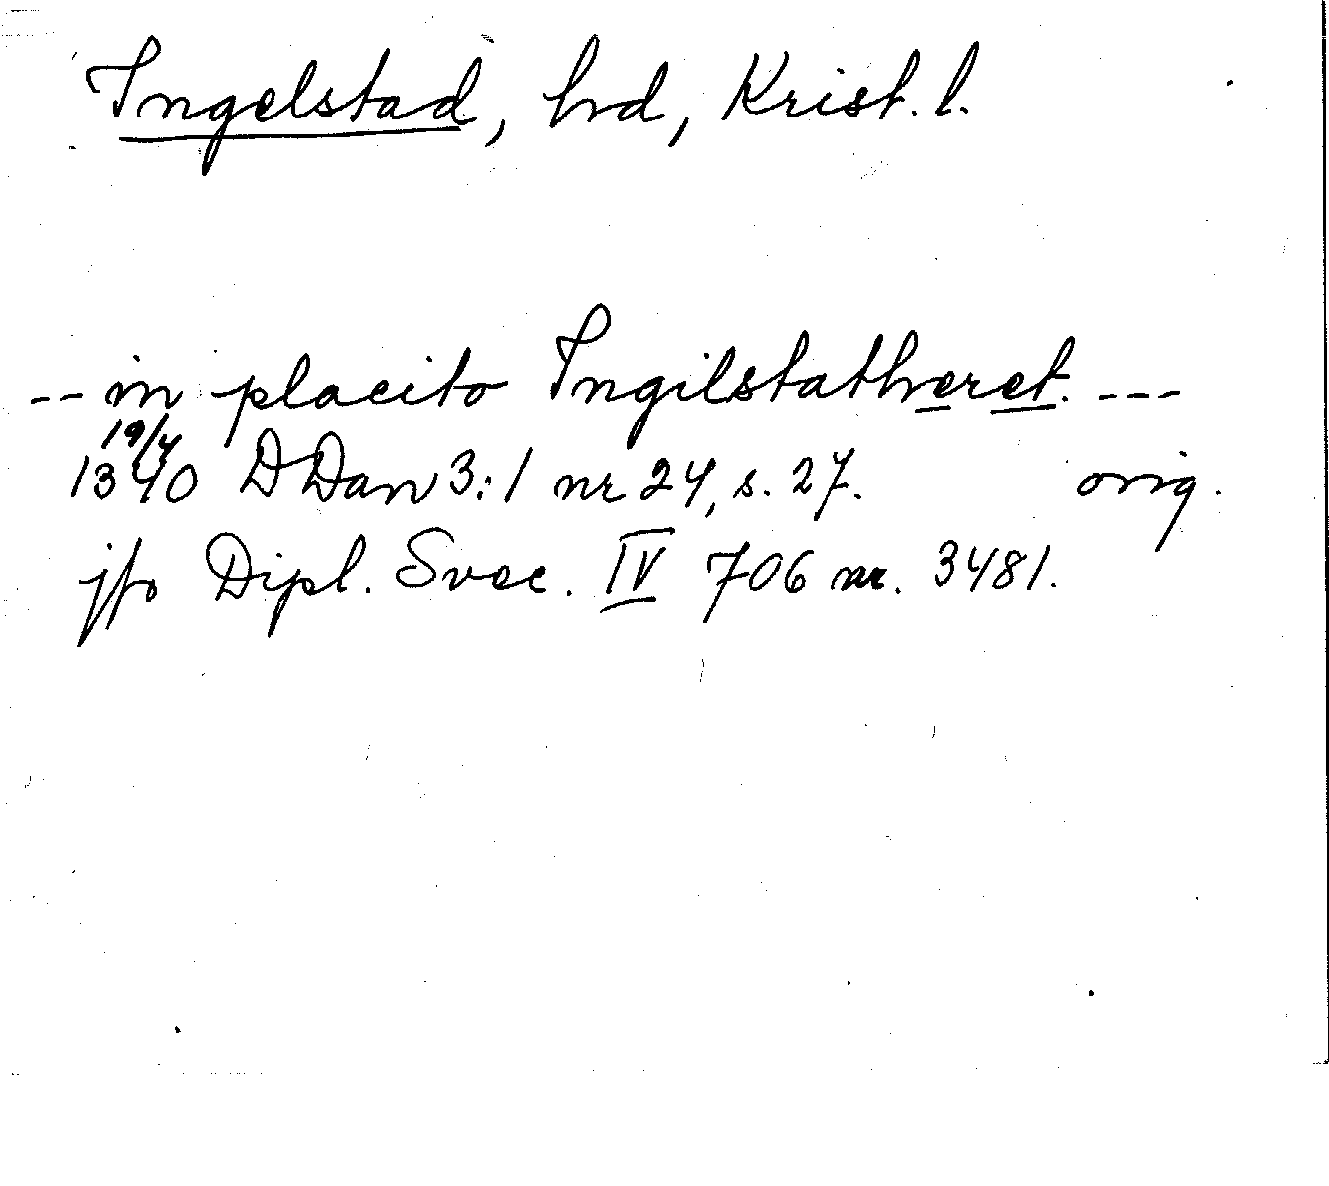 Ingelstad, hd, Krist. l.
-- in placito Ingilstatheret. ---
19/4
1340 DDan 3:1 nr 24, s. 27. orig.
jfr Dipl. Svec. IV 706 nr. 3481.